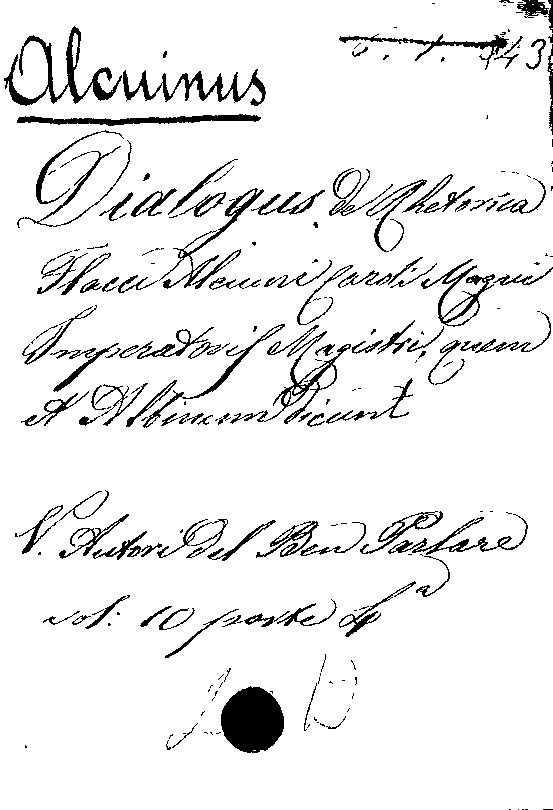 Alcuinus
Dialogus de Rhetorica
Flacci Alcuini Caroli Magni
Imperatoris Magistri, quem
et Albinum dicunt
V. Autori del Ben Parlare
vol: 10 parte 4a